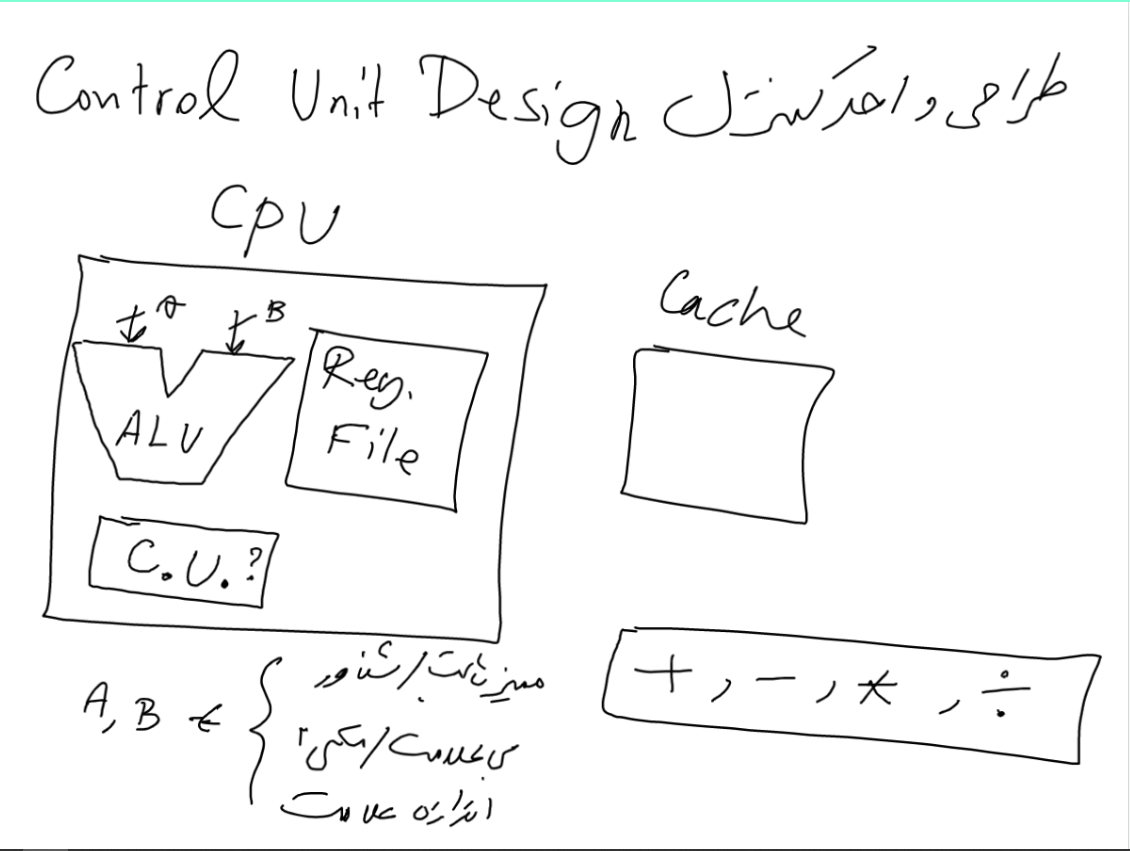 Control Unit Design طراحی واحد کنترل
CPU
Cache
A B
ALU
Reg.
File
C.U.?
A, B ∈ { ممیز ثابت/شناور
بی علامت/مکمل ۲
اندازه علامت
+ , - , * , ÷